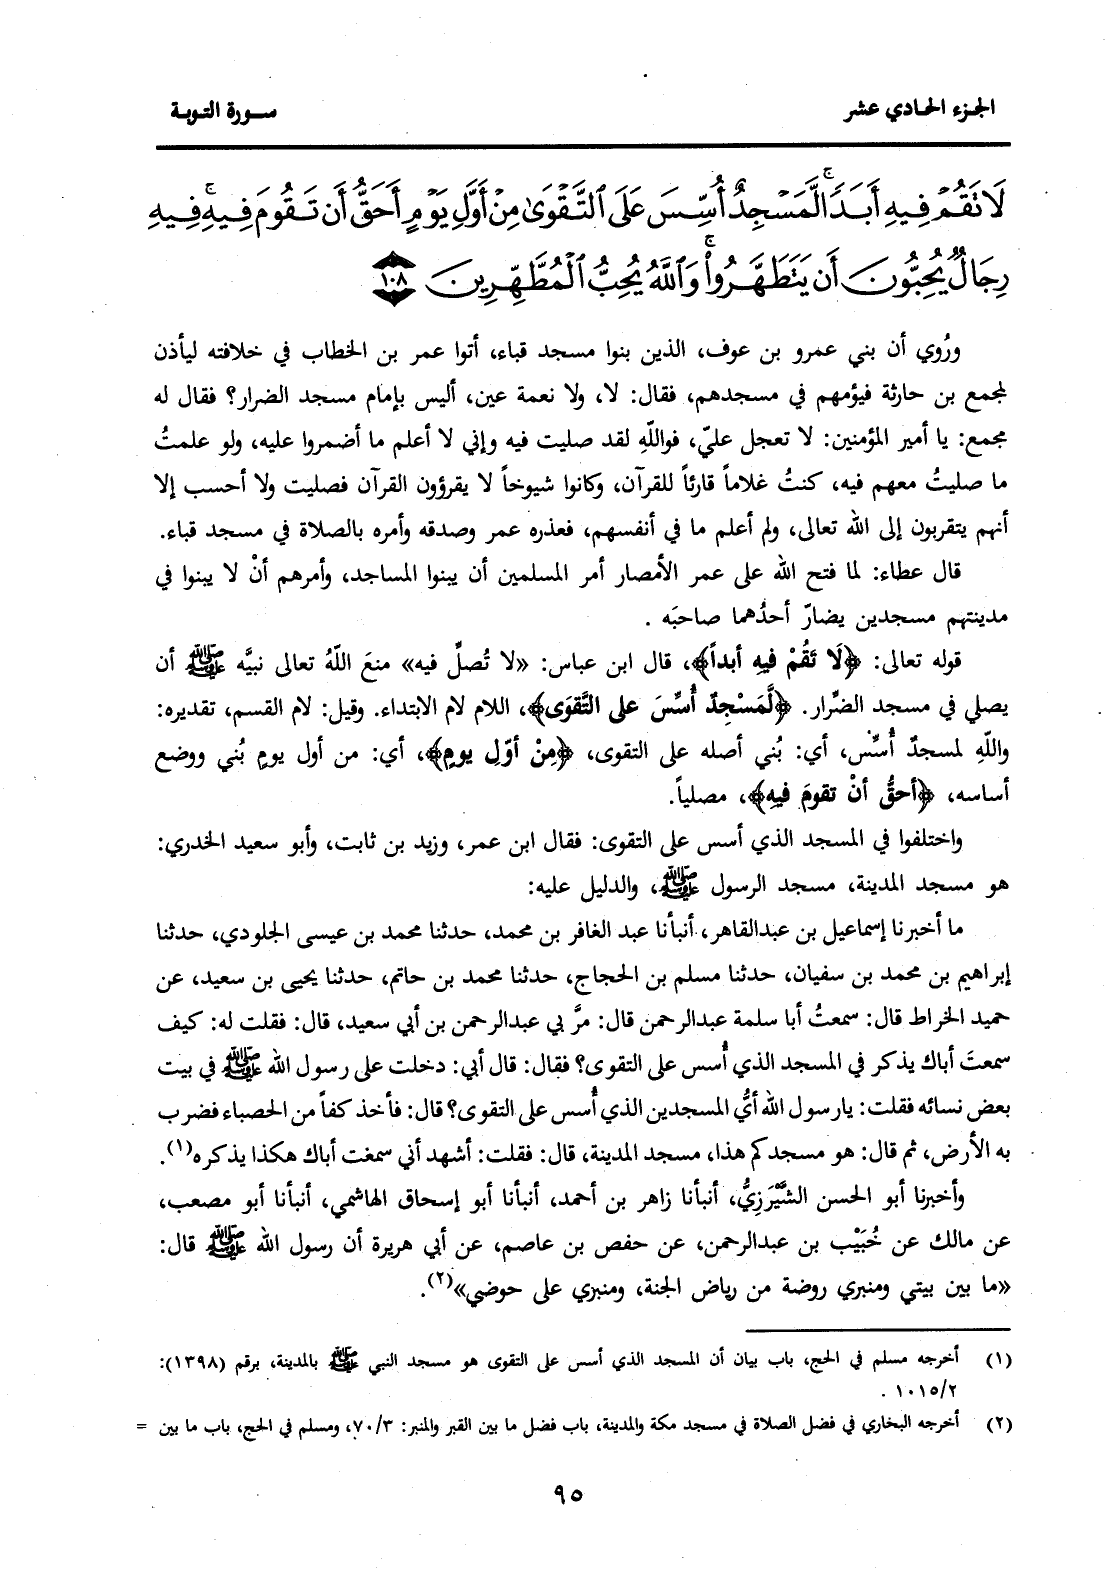 الجزء الحادي عشر
سورة التوبة
لَا تَقُمْ فِيهِ أَبَدًا لَّمَسْجِدٌ أُسِّسَ عَلَى ٱلتَّقْوَىٰ مِنْ أَوَّلِ يَوْمٍ أَحَقُّ أَن تَقُومَ فِيهِ فِيهِ
رِجَالٌ يُحِبُّونَ أَن يَتَطَهَّرُوا۟ وَٱللَّهُ يُحِبُّ ٱلْمُطَّهِّرِينَ ١٠٨
ورُوي أن بني عمرو بن عوف، الذين بنوا مسجد قباء، أتوا عمر بن الخطاب في خلافته ليأذن
لمجمع بن حارثة فيؤمهم في مسجدهم، فقال: لا، ولا نعمة عين، أليس بإمام مسجد الضرار؟ فقال له
مجمع: يا أمير المؤمنين: لا تعجل عليّ، فواللّهِ لقد صليت فيه وإني لا أعلم ما أضمروا عليه، ولو علمتُ
ما صليتُ معهم فيه، كنتُ غلاماً قارئاً للقرآن، وكانوا شيوخاً لا يقرؤون القرآن فصليت ولا أحسب إلا
أنهم يتقربون إلى الله تعالى، ولم أعلم ما في أنفسهم، فعذره عمر وصدقه وأمره بالصلاة في مسجد قباء.
قال عطاء: لما فتح الله على عمر الأمصار أمر المسلمين أن يبنوا المساجد، وأمرهم أنْ لا يبنوا في
مدينتهم مسجدين يضارّ أحدُهما صاحبَه .
قوله تعالى: ﴿لَا تَقُمْ فيهِ أبداً﴾، قال ابن عباس: «لا تُصلِّ فيه» منعَ اللّهُ تعالى نبيَّه ﷺ أن
يصلي في مسجد الضِّرار. ﴿لَّمَسْجِدٌ أُسِّسَ على التَّقوَى﴾، اللام لام الابتداء. وقيل: لام القسم، تقديره:
واللّهِ لمسجدٌ أُسِّسَ، أي: بُني أصله على التقوى، ﴿مِنْ أوّلِ يومٍ﴾، أي: من أول يومٍ بُني ووضع
أساسه، ﴿أحقُّ أنْ تقومَ فيهِ﴾، مصلياً.
واختلفوا في المسجد الذي أسس على التقوى: فقال ابن عمر، وزيد بن ثابت، وأبو سعيد الخدري:
هو مسجد المدينة، مسجد الرسول ﷺ، والدليل عليه:
ما أخبرنا إسماعيل بن عبدالقاهر، أنبأنا عبد الغافر بن محمد، حدثنا محمد بن عيسى الجلودي، حدثنا
إبراهيم بن محمد بن سفيان، حدثنا مسلم بن الحجاج، حدثنا محمد بن حاتم، حدثنا يحيى بن سعيد، عن
حميد الخراط قال: سمعتُ أبا سلمة عبدالرحمن قال: مرَّ بي عبدالرحمن بن أبي سعيد، قال: فقلت له: كيف
سمعتَ أباك يذكر في المسجد الذي أُسس على التقوى؟ فقال: قال أبي: دخلت على رسول الله ﷺ في بيت
بعض نسائه فقلت: يارسول الله أيُّ المسجدين الذي أُسس على التقوى؟ قال: فأخذ كفاً من الحصباء فضرب
به الأرض، ثم قال: هو مسجدكم هذا، مسجد المدينة، قال: فقلت: أشهد أني سمعت أباك هكذا يذكره(١).
وأخبرنا أبو الحسن الشَّيْرَزِيُّ، أنبأنا زاهر بن أحمد، أنبأنا أبو إسحاق الهاشمي، أنبأنا أبو مصعب،
عن مالك عن خُبَيْب بن عبدالرحمن، عن حفص بن عاصم، عن أبي هريرة أن رسول الله ﷺ قال:
«ما بين بيتي ومنبري روضة من رياض الجنة، ومنبري على حوضي»(٢).
(١) أخرجه مسلم في الحج، باب بيان أن المسجد الذي أسس على التقوى هو مسجد النبي ﷺ بالمدينة، برقم (١٣٩٨):
٢/١٠١٥ .
(٢) أخرجه البخاري في فضل الصلاة في مسجد مكة والمدينة، باب فضل ما بين القبر والمنبر: ٣/٧٠، ومسلم في الحج، باب ما بين =
٩٥